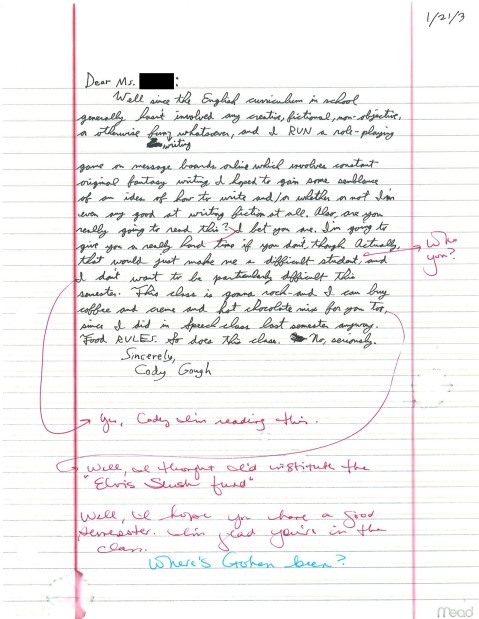 1/21/3
Dear Ms. :
Well since the English curriculum in school
generally hasn't involved any creative, fictional, non-objective,
or otherwise funny whatsoever, and I RUN a role-playing
writing
game on message boards online which involves constant
original fantasy writing I hoped to gain some semblance
of an idea of how to write and/or whether or not I'm
even any good at writing fiction at all. Also, are you
really going to read this? I bet you are. I'm going to
give you a really hard time if you don't, though. Actually,
that would just make me a difficult student, and
I don't want to be particularly difficult this
semester. This class is gonna rock–and I can buy
coffee and creme and hot chocolate mix for you too,
since I did in Speech class last semester anyway.
Food RULES. So does this class. No, seriously.
Sincerely,
Cody Gough
Who
you?
Yes, Cody I'm reading this.
Well, I thought I'd institute the
"Elvis Slush fund"
Well, I hope you have a good
semester. I'm glad you're in the
class.
Where's Gohan been?
Mead